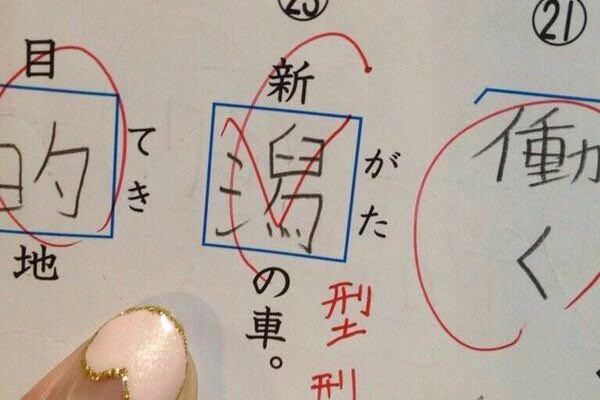 ㉑
働く
がた
新潟の車。
型
型
てき
目的地